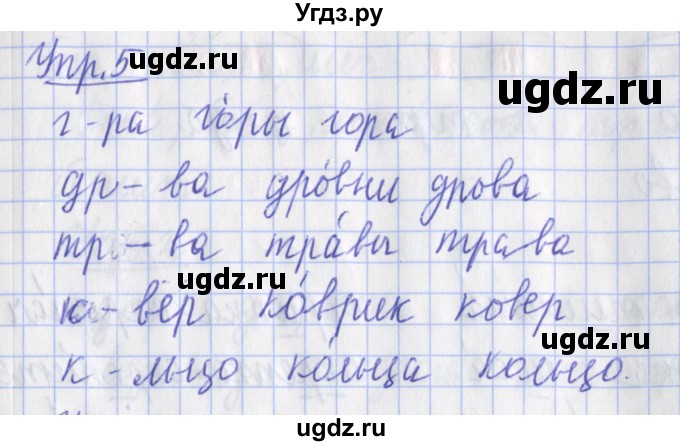 Угдз.ру
Упр. 5 ugdz.ru
ugdz.ru
г-ра го́ры гора
др-ва дро́вни дрова
тр-ва тра́вы трава
ugdz.ru
к-вёр ко́врик ковер
к-льцо ко́льца кольцо.
ugdz.ru ugdz.ru